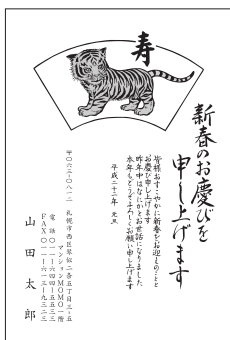 寿
新春のお慶びを
申し上げます
皆様おすこやかに新春をお迎えのことと
お慶び申し上げます
昨年中はなにかとお世話になりました
本年もどうぞよろしくお願い申し上げます
平成二十二年 元旦
〒〇六三-〇八一二 札幌市西区琴似二条五丁目三-五
マンションMOMO一階
電話 〇一一-六四四-五五三三
FAX 〇一一-六一三-九三二三
山田太郎